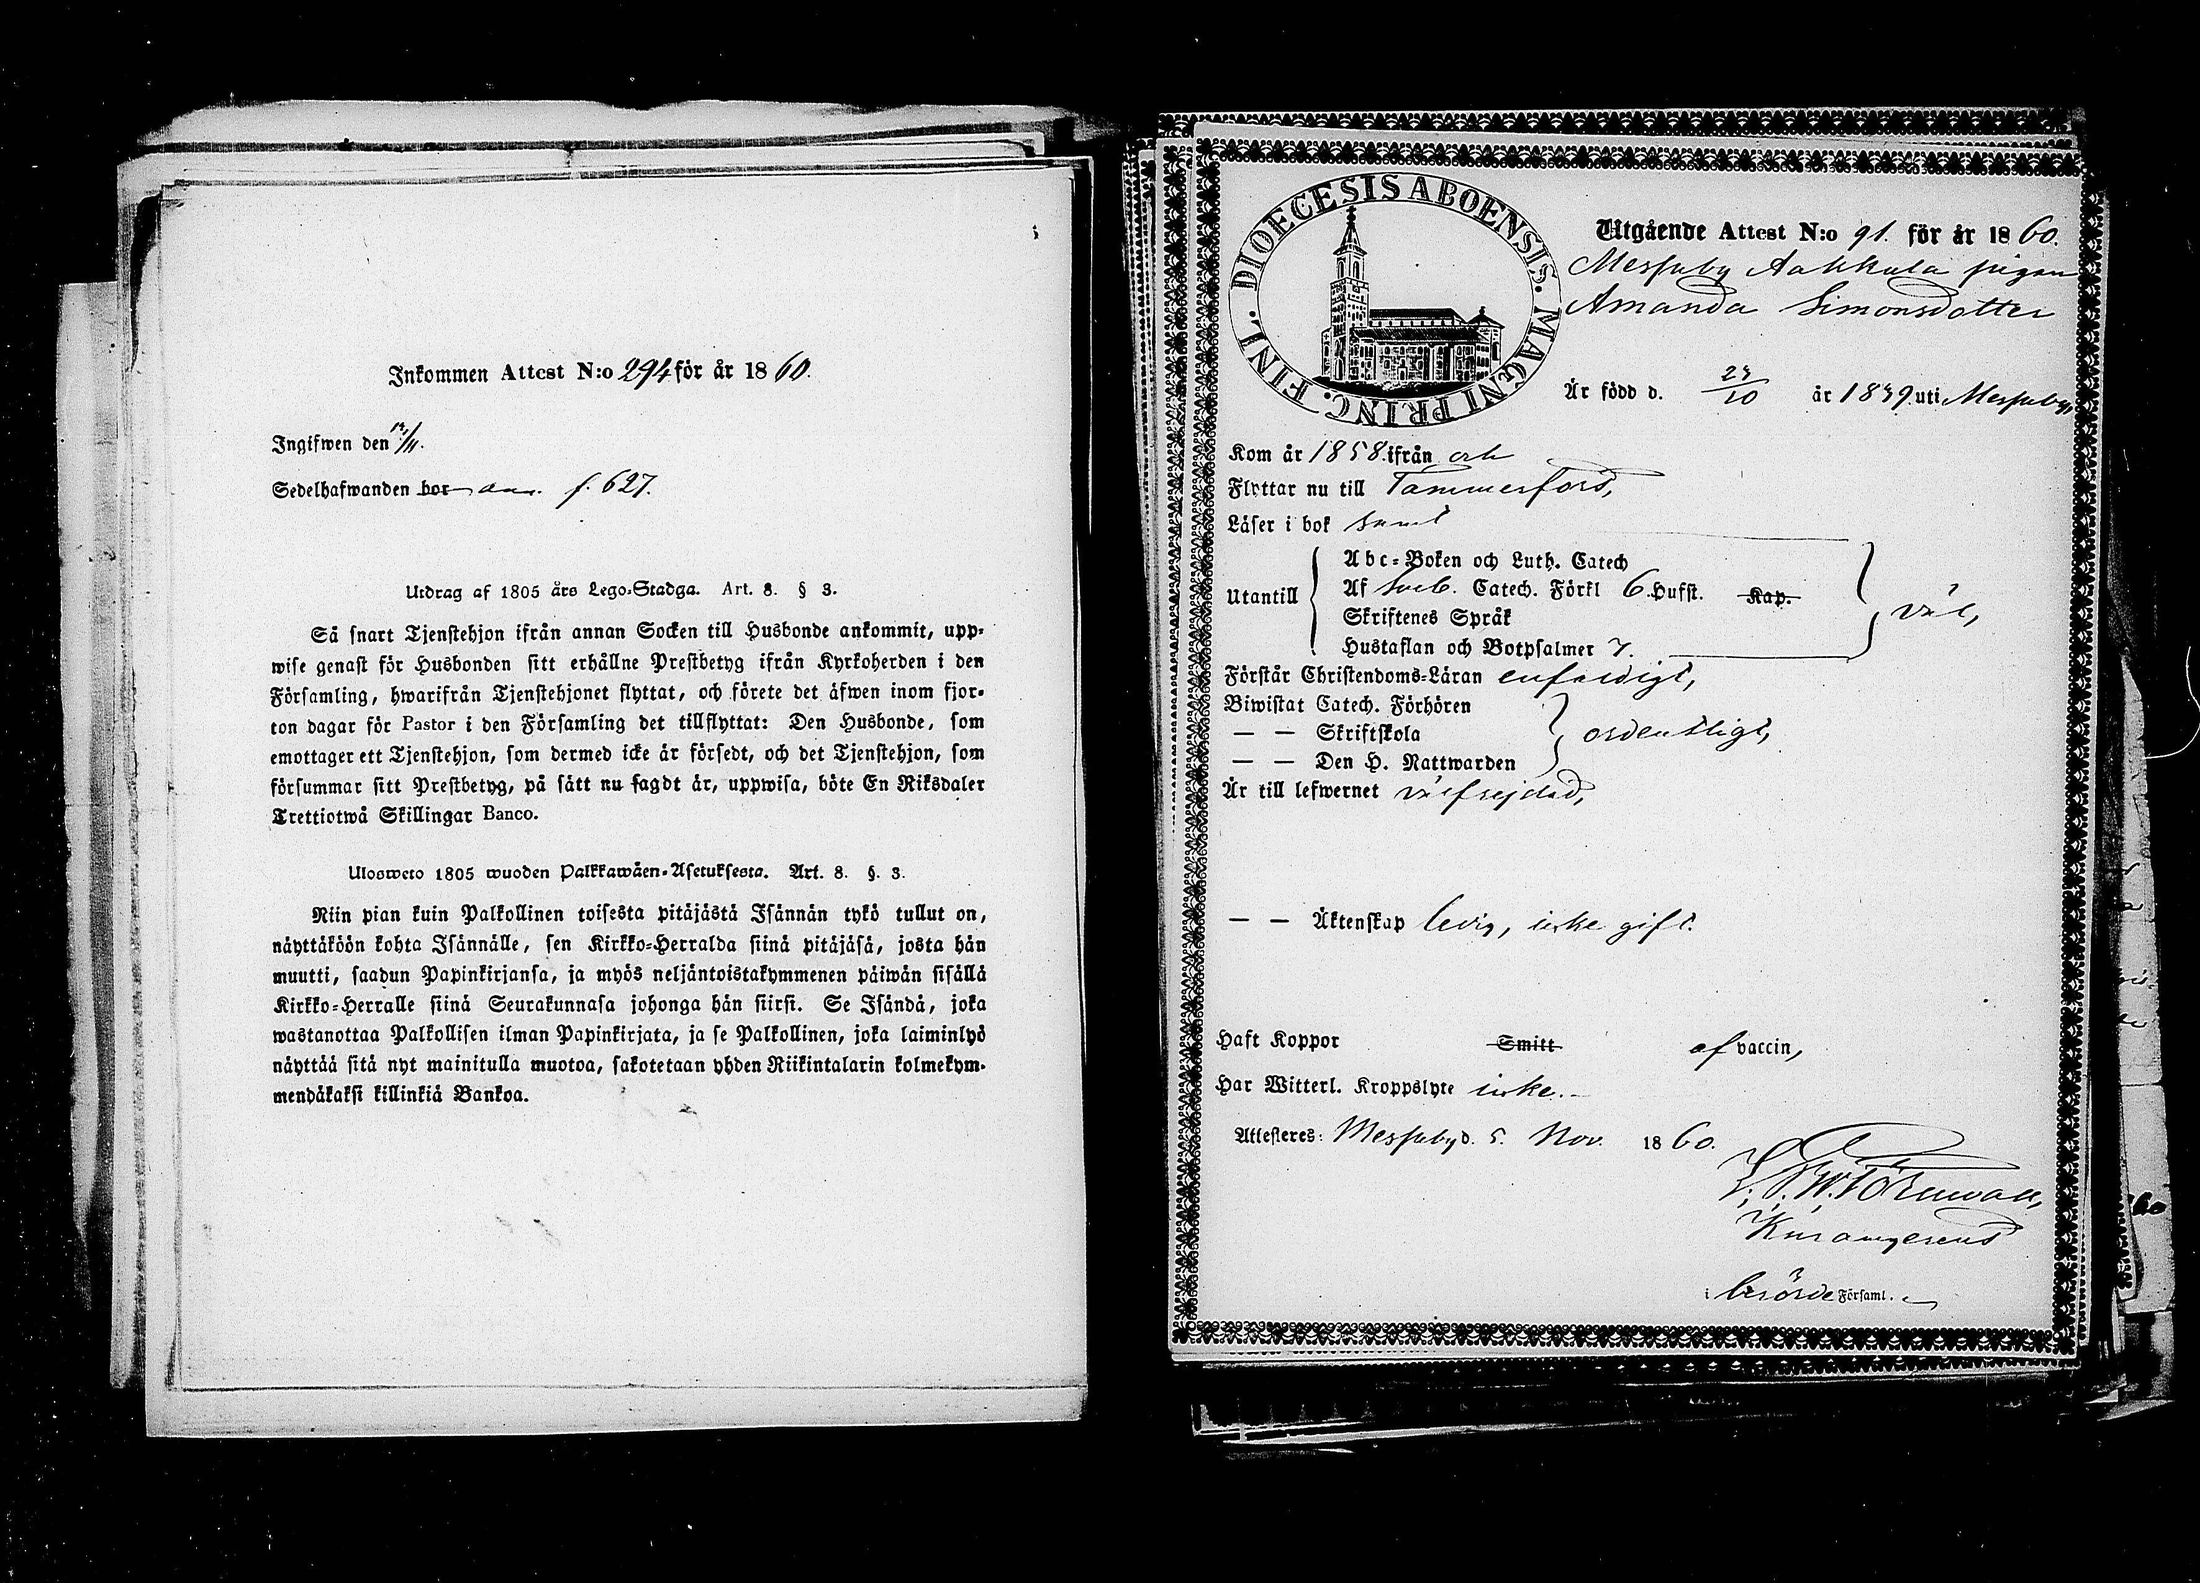 Inkommen Attest N:o 294 för år 1860.
Ingifwen den 14/11.
Sedelhafwanden bor ann. f. 627.
Utdrag af 1805 års Lego-Stadga. Art. 8. § 3.
Så snart Tjenstehjon ifrån annan Socken till Husbonde ankommit, upp-
wise genast för Husbonden sitt erhållne Prestbetyg ifrån Kyrkoherden i den
Församling, hwarifrån Tjenstehjonet flyttat, och förete det äfwen inom fjor-
ton dagar för Pastor i den Församling det tillflyttat: Den Husbonde, som
emottager ett Tjenstehjon, som dermed icke är försedt, och det Tjenstehjon, som
försummar sitt Prestbetyg, på sätt nu sagdt är, uppwisa, böte En Riksdaler
Trettiotwå Skillingar Banco.
Ulosweto 1805 wuoden Palkkawäen-Asetuksesta. Art. 8. §. 3.
Niin pian kuin Palkollinen toisesta pitäjästä Isännän tykö tullut on,
näyttäköön kohta Isännälle, sen Kirkko-Herralda siinä pitäjäsä, josta hän
muutti, saadun Papinkirjansa, ja myös neljäntoistakymmenen päiwän sisällä
Kirkko-Herralle siinä Seurakunnasa johonga hän siirsi. Se Isändä, joka
wastanottaa Palkollisen ilman Papinkirjata, ja se Palkollinen, joka laiminlyö
näyttää sitä nyt mainitulla muotoa, sakotetaan yhden Riikintalarin kolmekym-
mendäkaksi killinkiä Bankoa.
DIOECESIS ABOENSIS. MAGNI PRINC. FINL.
Utgående Attest N:o 91. för år 1860.
Messuby Aakkula pigan
Amanda Simonsdotter
Är född d. 23/10 år 1839 uti Messuby,
Kom år 1858. ifrån och
Flyttar nu till Tammerfors,
Läser i bok samt
Abc-Boken och Luth. Catech
Utantill Af Sveb. Catech. Förkl 6. Hufst. Kap. väl,
Skriftenes Språk
Hustaflan och Botpsalmer 7.
Förstår Christendoms-Läran enfaldigt,
Biwistat Catech. Förhören
— — Skriftskola ordentligt,
— — Den H. Nattwarden
Är till lefwernet välfrejdad,
— — Äktenskap ledig, icke gift.
Haft Koppor Smitt af vaccin,
Har Witterl. Kroppslyte icke.
Attesteres: Messuby d. 5. Nov. 1860.
i berörde Församl.